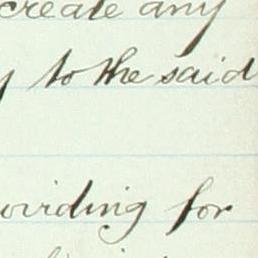 create any
to the said
oviding for